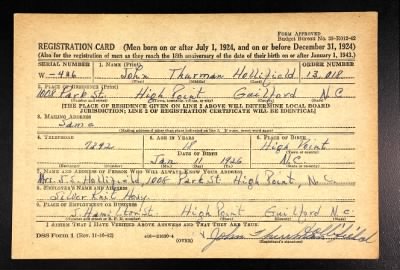 FORM APPROVED
Budget Bureau No. 33-R012-42
REGISTRATION CARD (Men born on or after July 1, 1924, and on or before December 31, 1924)
(Also for the registration of men as they reach the 18th anniversary of the date of their birth on or after January 1, 1943.)
SERIAL NUMBER 1. NAME (Print) ORDER NUMBER
W-426 John Thurman Hollifield 13,018
2. PLACE OF RESIDENCE (Print)
1008 Park St. High Point Guilford N.C.
[THE PLACE OF RESIDENCE GIVEN ON LINE 2 ABOVE WILL DETERMINE LOCAL BOARD
JURISDICTION; LINE 2 OF REGISTRATION CERTIFICATE WILL BE IDENTICAL]
3. MAILING ADDRESS
Same
[Mailing address if other than place indicated on line 2. If same, insert word same]
4. TELEPHONE 5. AGE IN YEARS 6. PLACE OF BIRTH
7292 18 High Point
DATE OF BIRTH
Jan 11 1926 N.C.
7. NAME AND ADDRESS OF PERSON WHO WILL ALWAYS KNOW YOUR ADDRESS
Mrs. Hollifield, 1008 Park St. High Point, N.C.
8. EMPLOYER'S NAME AND ADDRESS
Silver Knit Hosy.
9. PLACE OF EMPLOYMENT OR BUSINESS
S. Hamilton St. High Point Guilford N.C.
I AFFIRM THAT I HAVE VERIFIED ABOVE ANSWERS AND THAT THEY ARE TRUE.
DSS Form 1 (Rev. 11-16-42) (OVER) John Thurman Hollifield
(Registrant's signature)